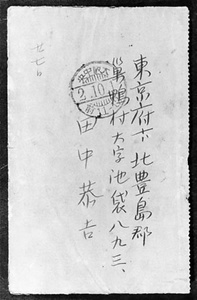 東京府下北豊島郡
巣鴨村大字池袋八九三、
田中恭吉
廿七日
2.10